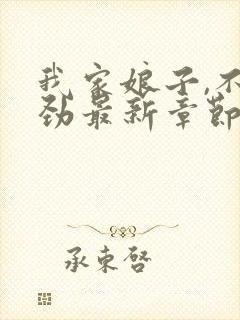 我家娘子,不
劲最新章節
承東啓